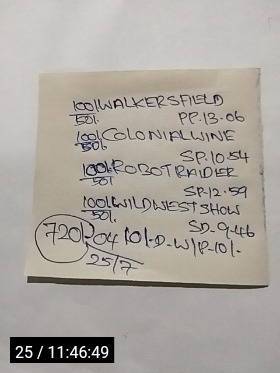 100/ WALKERSFIELD
50/. PP.13-06
100/ COLONIALWINE
50/. SP.10.54
100/. ROBOTRAIDER
50/ SP.12-59
100/. WILDWESTSHOW
50/. SD-9-46
720/204 10/-D-W/P-10/-
25/7
25 / 11:46:49